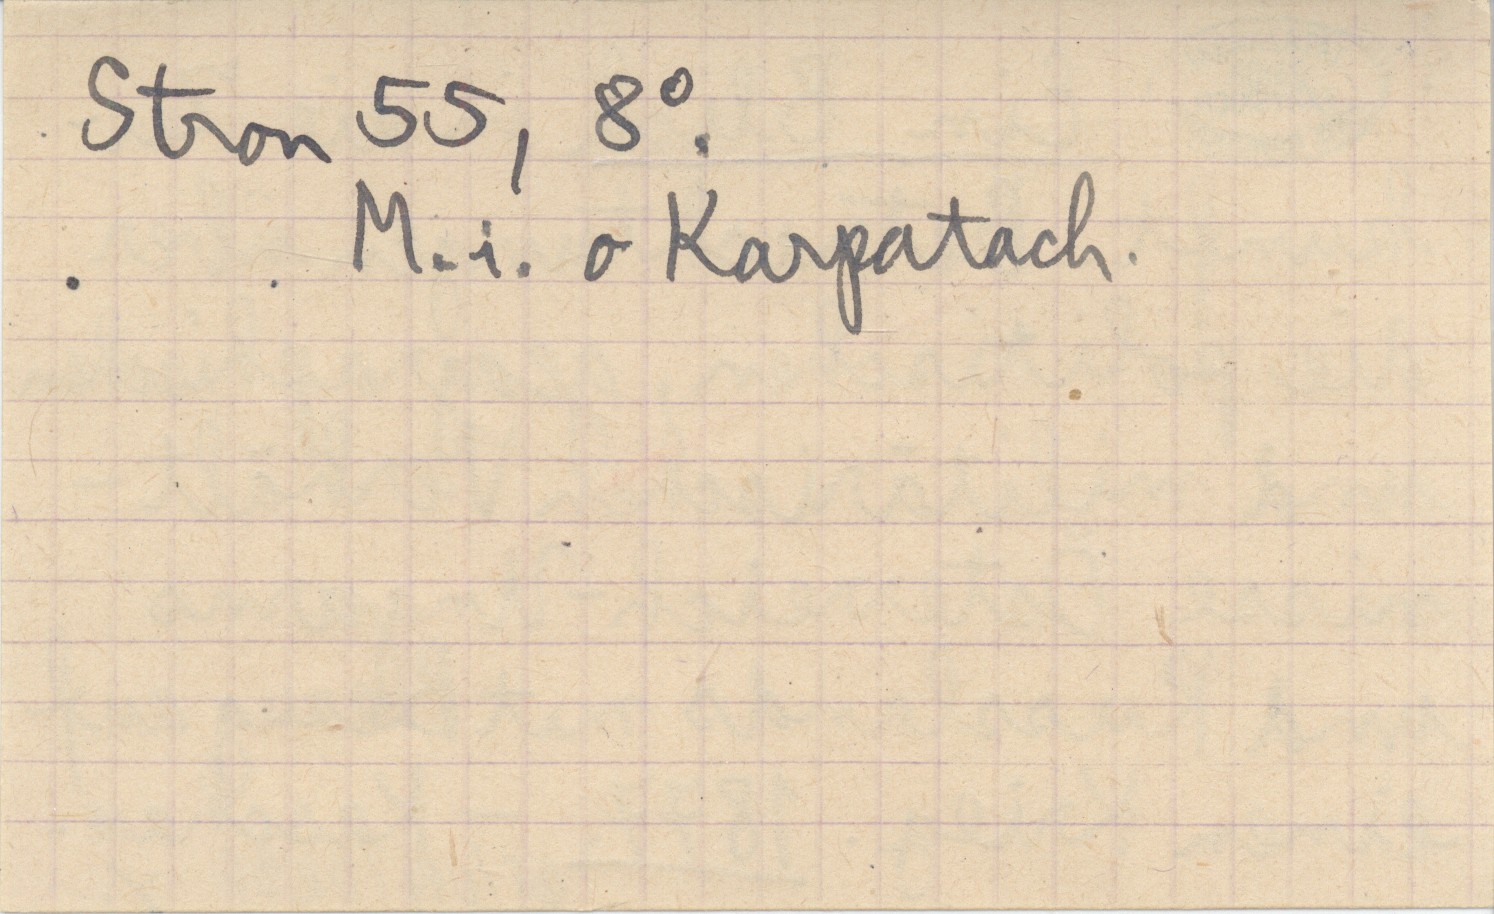 Stron 55, 8°.
M. i. o Karpatach.